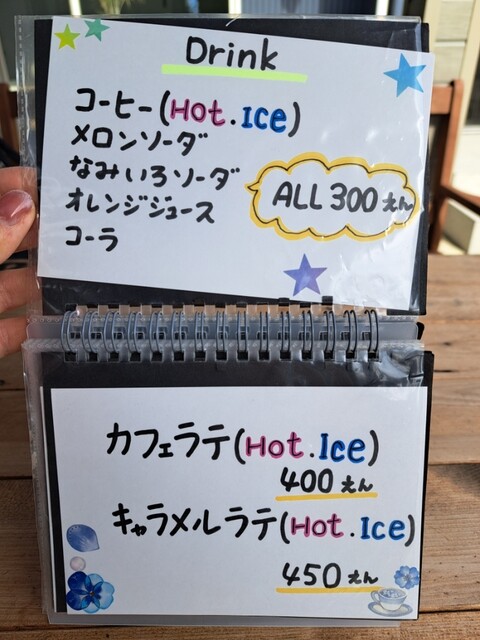 Drink
コーヒー(Hot.Ice)
メロンソーダ
なみいろソーダ
オレンジジュース
コーラ
ALL 300えん
カフェラテ(Hot.Ice)
400えん
キャラメルラテ(Hot.Ice)
450えん